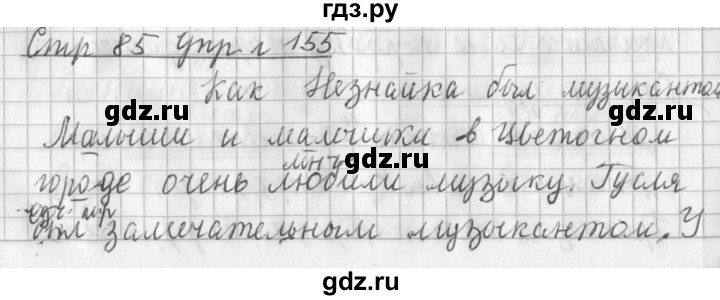 гдз.ру
Стр 85 упр. г 155
Как Незнайка был музыкантом
Малыши и малышки в Цветочном
мн.ч
городе очень любили музыку. Гусля
ед.ч. м.р
был замечательным музыкантом. У
gdz.ru gdz.ru gdz.ru
gdz.ru gdz.ru gdz.ru
gdz.ru